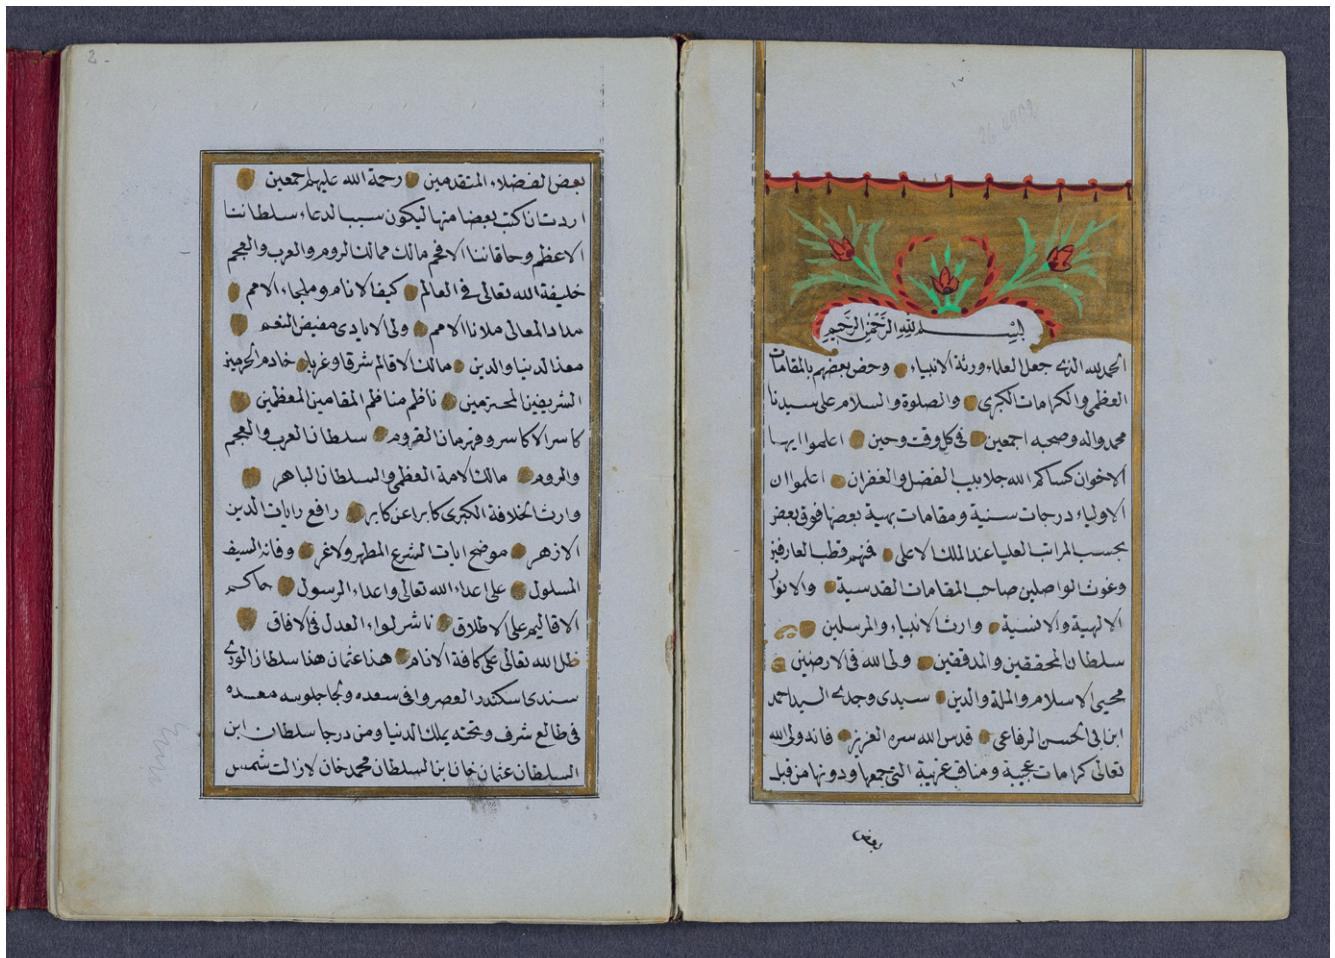 بسم الله الرحمن الرحيم
الحمد لله الذى جعل العلماء ورثة الانبياء وخص بعضهم بالمقامات
العظمى والكرامات الكبرى والصلوة والسلام على سيدنا
محمد واله وصحبه اجمعين فى كل وقت وحين اعلموا ايها
الاخوان كساكم الله جلابيب الفضل والغفران اعلموا ان
الاولياء درجات سنية ومقامات بهية بعضها فوق بعض
بحسب المراتب العليا عند الملك الاعلى فمنهم قطب العارفين
وغوث الواصلين صاحب المقامات القدسية والانوار
الالهية والانسية وارث الانبياء والمرسلين
سلطان المحققين والمدققين ولى الله فى الارضين
محيى الاسلام والملة والدين سيدى وجدى السيد احمد
ابن ابى الحسن الرفاعى قدس الله سره العزيز فانه ولى الله
تعالى كرامات عجيبة ومناقب غريبة التى جمعها ودونها من قبل
بعض
2
بعض الفضلاء المتقدمين رحمة الله عليهم اجمعين
اردت ان اكتب بعضا منها ليكون سببا لدعاء سلطاننا
الاعظم وخاقاننا الافخم مالك ممالك الروم والعرب والعجم
خليفة الله تعالى فى العالم كهف الانام وملجاء الامم
مداد المعالى ملاذ الامم ولى الايادى مفيض النعم
معز الدنيا والدين مالك الاقالم شرقا وغربا خادم الحرمين
الشريفين المحترمين ناظم مناظم المقامين المعظمين
كاسر الاكاسر وقهرمان القروم سلطان العرب والعجم
والروم مالك الامة العظمى والسلطان الباهر
وارث الخلافة الكبرى كابرا عن كابر رافع رايات الدين
الازهر موضح ايات الشرع المطهر ولاغر وفانه السيف
المسلول على اعداء الله تعالى واعداء الرسول حاكم
الاقاليم على الاطلاق ناشر لواء العدل فى الافاق
ظل الله تعالى على كافة الانام هذا عثمان هذا سلطان الورى
سندى اسكندر العصر وافى سعده وبحا جلوسه معده
فى طالع شرف وبخته يملك الدنيا ومن درجا سلطان ابن
السلطان عثمان خان ابن السلطان محمد خان لا زالت شمس